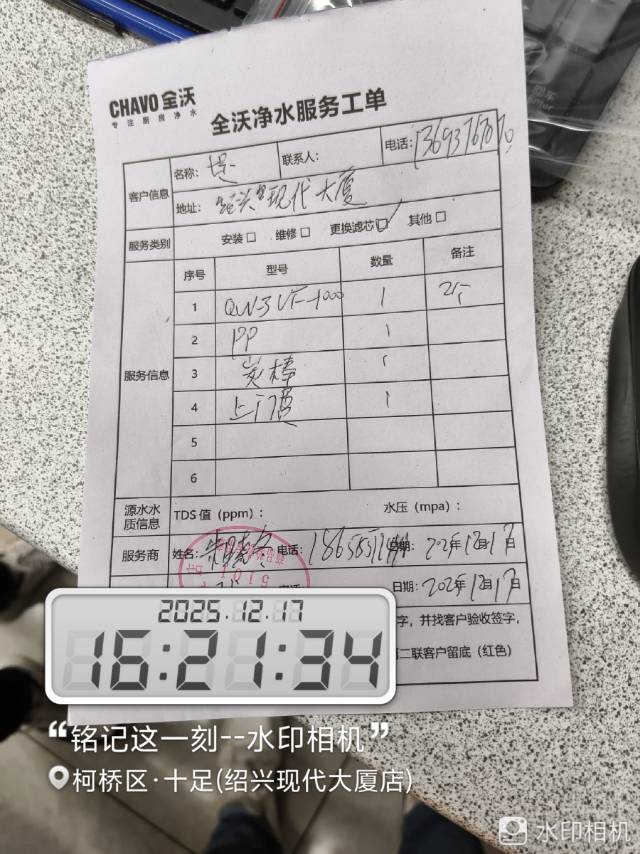 CHAVO 全沃
专注厨房净水
全沃净水服务工单
客户信息
名称：
联系人：
电话：
地址：绍兴 现代大厦
服务类别
安装□ 维修□ 更换滤芯☑ 其他□
服务信息
序号 型号 数量 备注
1 1
2 PP 1
3 炭棒 1
4 上门费 1
5
6
源水水质信息
TDS 值（ppm）： 水压（mpa）：
服务商 姓名： 电话： 12月17日
日期： 12月17日
字，并找客户验收签字，
第二联客户留底（红色）
2025.12.17
16:21:34
“铭记这一刻--水印相机”
柯桥区·十足(绍兴现代大厦店)
水印相机